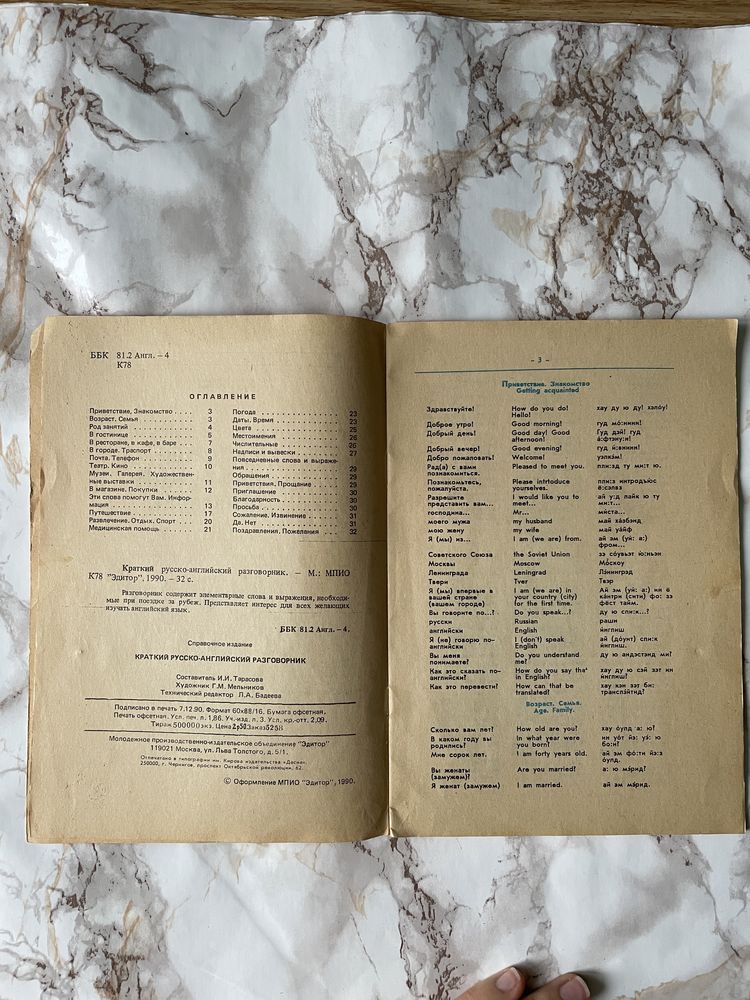 ББК 81.2 Англ. – 4
К78
ОГЛАВЛЕНИЕ
Приветствие, Знакомство .... 3
Возраст. Семья ........ 3
Род занятий .......... 4
В гостинице .......... 5
В ресторане, в кафе, в баре .. 7
В городе. Траспорт ....... 8
Почта. Телефон ........ 9
Театр. Кино .......... 10
Музеи, Галерея, Художествен-
ные выставки ......... 11
В магазине. Покупки ...... 12
Эти слова помогут Вам. Инфор-
мация ............. 13
Путешествие .......... 17
Развлечение. Отдых. Спорт .. 20
Медицинская помощь ..... 21
Погода ............. 23
Даты. Время .......... 23
Цвета .............. 25
Местоимения .......... 26
Числительные ......... 26
Надписи и вывески ....... 27
Повседневные слова и выраже-
ния ............... 29
Обращения ........... 29
Приветствия, Прощание .... 29
Приглашение .......... 30
Благодарность ......... 30
Просьба ............ 31
Сожаление. Извинение ..... 31
Да, Нет ............. 31
Поздравления, Пожелания ... 32
Краткий русско-английский разговорник. – М.: МПИО
К78 "Эдитор", 1990. – 32 с.
Разговорник содержит элементарные слова и выражения, необходи-
мые при поездке за рубеж. Представляет интерес для всех желающих
изучать английский язык.
ББК 81.2 Англ. – 4.
Справочное издание
КРАТКИЙ РУССКО-АНГЛИЙСКИЙ РАЗГОВОРНИК
Составитель И.И. Тарасова
Художник Г.М. Мельников
Технический редактор Л.А. Бадеева
Подписано в печать 7.12.90. Формат 60х88/16. Бумага офсетная.
Печать офсетная. Усл. печ. л. 1,86. Уч.-изд. л. 3. Усл. кр.-отт. 2,09.
Тираж 500000 экз. Цена Заказ 5258
Молодежное производственно-издательское объединение "Эдитор"
119021 Москва, ул. Льва Толстого, д. 5/1.
Отпечатано в типографии им. Кирова издательства «Десна»
250000, г. Чернигов, проспект Октябрьской революции, 62.
© Оформление МПИО "Эдитор", 1990.
– 3 –
Приветствие. Знакомство
Getting acquainted
Здравствуйте! How do you do! Hello! хау ду ю ду! хэлоу!
Доброе утро! Good morning! гуд мо:нинг!
Добрый день! Good day! Good afternoon! Гуд дэй! гуд а:фтэну:н!
Добрый вечер! Good evening! гуд и:внинг!
Добро пожаловать! Welcome! уэлкэм!
Рад(а) с вами познакомиться. Pleased to meet you. пли:зд ту ми:т ю.
Познакомьтесь, пожалуйста. Please intrtoduce yourselves.
Разрешите представить вам... I would like you to meet... ай у:д лайк ю ту ми:т...
господина... Mr... миста...
моего мужа my husband май хазбэнд
мою жену my wife май уайф
Я (мы) из... I am (we are) from. ай эм (уи: а:) фром...
Советского Союза the Soviet Union зэ соувьэт ю:ньэн
Москвы Moscow Москоу
Ленинграда Leningrad Лэнинград
Твери Tver Твэр
Я (мы) впервые в вашей стране (вашем городе) I am (we are) in your country (city) for the first time. Ай эм (уи: а:) ин ё кантри (сити) фо: зэ фёст тайм.
Вы говорите по...? Do you speak...? ду ю спи:к...?
русски Russian раши
английски English инглиш
Я (не) говорю по-английски I (don't) speak English Ай (доунт) спи:к инглиш
Вы меня понимаете? Do you understand me? ду ю андэстэнд ми?
Как это сказать по-английски? How do you say that in English? хау ду ю сэй зэт ин инглиш?
Как это перевести? How can that be translated! хау кэн зэт би: транслэйтид?
Возраст. Семья.
Age. Family.
Сколько вам лет? How old are you? хау оулд а: ю?
В каком году вы родились? In what year were you born? ин уот йэ: уэ: ю бо:н?
Мне сорок лет. I am forty years old. ай эм фо:ти йэ:з оулд.
Вы женаты (замужем)? Are you married? а: ю мэрид?
Я женат (замужем) I am married. ай эм мэрид.